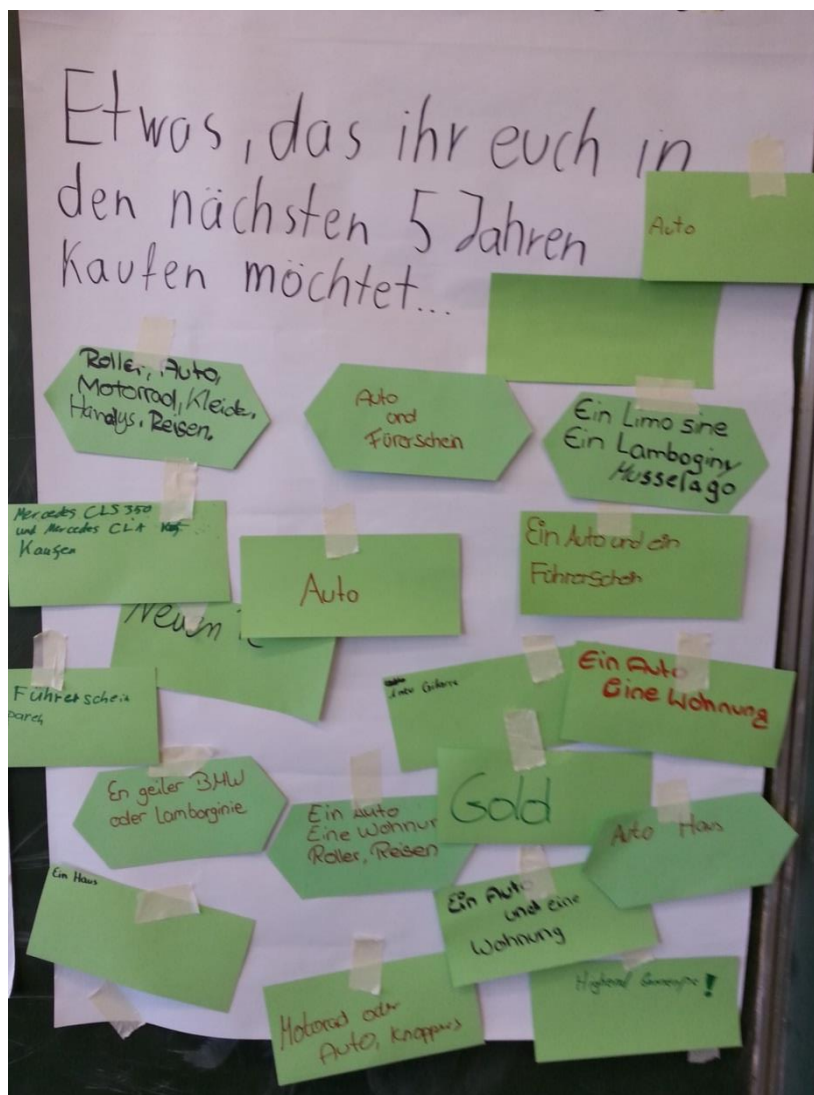 Etwas, das ihr euch in
den nächsten 5 Jahren
kaufen möchtet...
Auto
Roller, Auto,
Motorrad, Kleider,
Handys, Reisen.
Auto
und
Fürerschein
Ein Limo sine
Ein Lamboginy
Musselago
Mercedes CLS 350
und Mercedes CLA
Kaufen
Auto
Ein Auto und ein
Führerschein
Neuen
Führerschein
Gitarre
Ein Auto
Eine Wohnung
En geiler BMW
oder Lamborginie
Ein Auto
Eine Wohnun
Roller, Reisen
Gold
Auto Haus
Ein Haus
Ein Auto
und eine
Wohnung
Motorrad oder
Auto, Knoppers
Highend